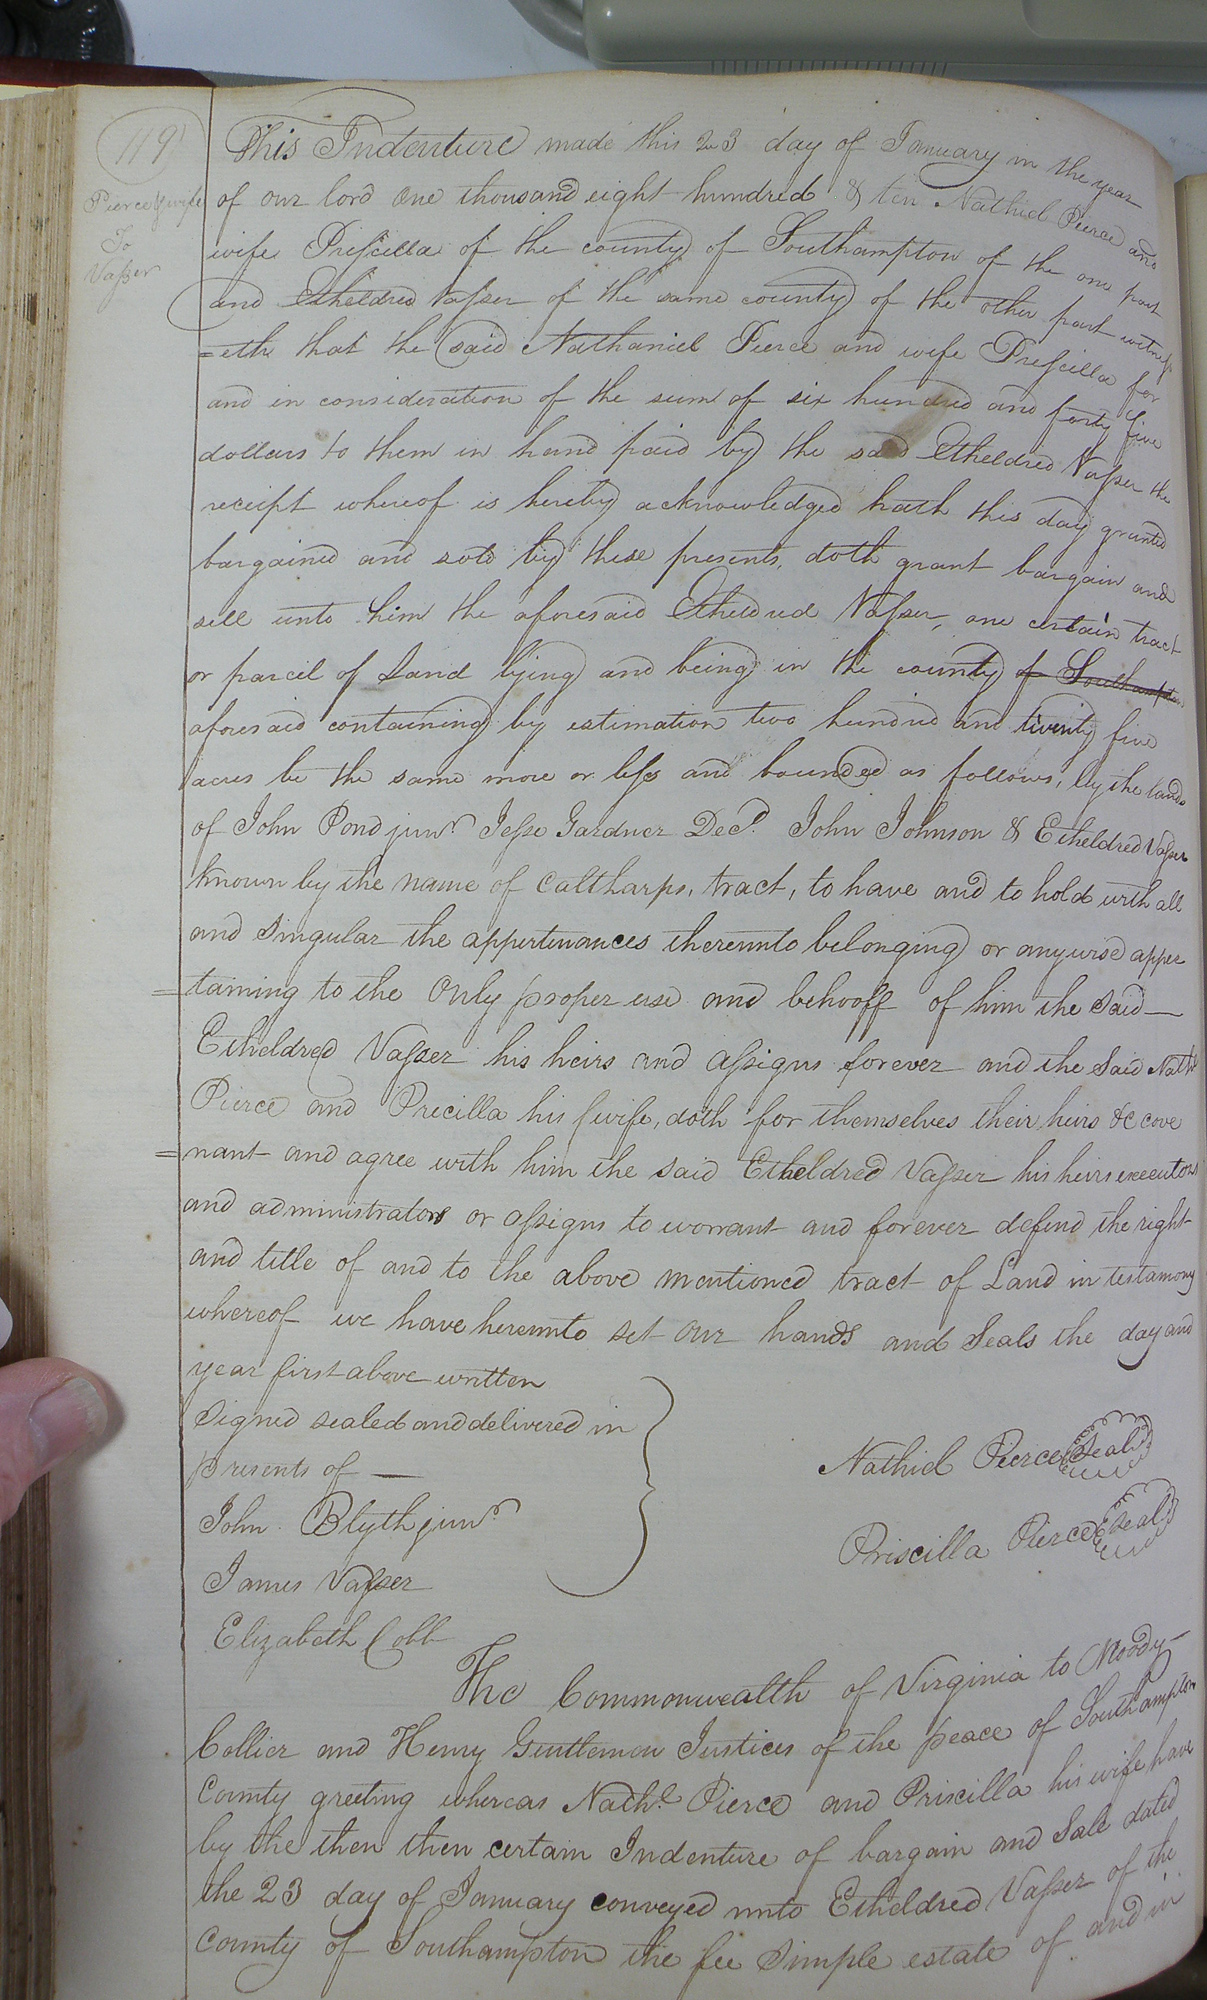 119
Pierce & wife
To
Vasser
This Indenture made this 23 day of January in the year
of our lord one thousand eight hundred & ten Nathiel Pierce and
wife Priscilla of the county of Southampton of the one part
and Etheldred Vasser of the same county of the other part witness
=eth that the said Nathaniel Pierce and wife Priscilla for
and in consideration of the sum of six hundred and forty five
dollars to them in hand paid by the said Etheldred Vasser the
receipt whereof is hereby acknowledged hath this day granted
bargained and sold by these presents, doth grant bargain and
sell unto him the aforesaid Etheldred Vasser, one certain tract
or parcel of Land lying and being in the county of Southampton
aforesaid containing by estimation two hundred and twenty five
acres be the same more or less and bounded as follows, by the lands
of John Pond junr. Jesse Gardner Decd. John Johnson & Etheldred Vasser
known by the name of Caltharps, tract, to have and to hold with all
and Singular the appertenances thereunto belonging or anywise apper
=taining to the Only proper use and behooff of him the Said—
Etheldred Vasser his heirs and assigns forever and the Said Nathl
Pierce and Pricilla his wife, doth for themselves their heirs &c cove
=nant and agree with him the said Etheldred Vasser his heirs executors
and administrators or assigns to worrant and forever defend the right
and title of and to the above mentioned tract of Land in testamony
whereof we have hereunto set our hands and Seals the day and
year first above written
Signed sealed and delivered in
presents of —
Nathiel Pierce Seal
John Blyth junr.
Priscilla Pierce Seal
James Vasser
Elizabeth Cobb
The Commonwealth of Virginia to Moody—
Collier and Henry Gentlemen Justices of the peace of Southampton
County greeting whereas Nathl. Pierce and Priscilla his wife have
by the then then certain Indenture of bargain and Sale dated
the 23 day of January conveyed unto Etheldred Vasser of the
County of Southampton the fee Simple estate of and in